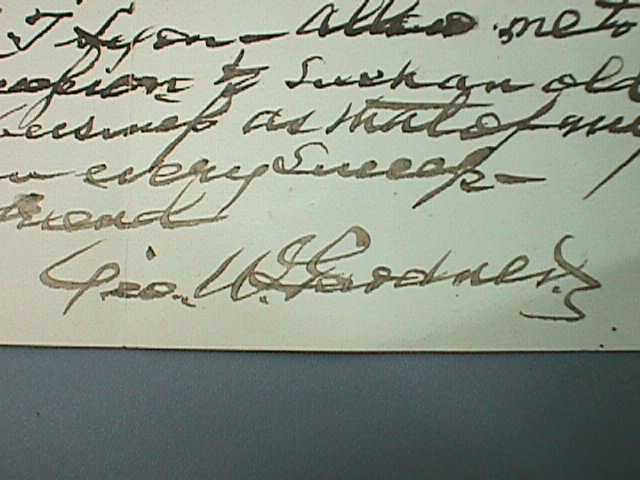 T Lyon - allow me to
to such an old
business as that of
every success -
friend
Geo. W. Gardner.